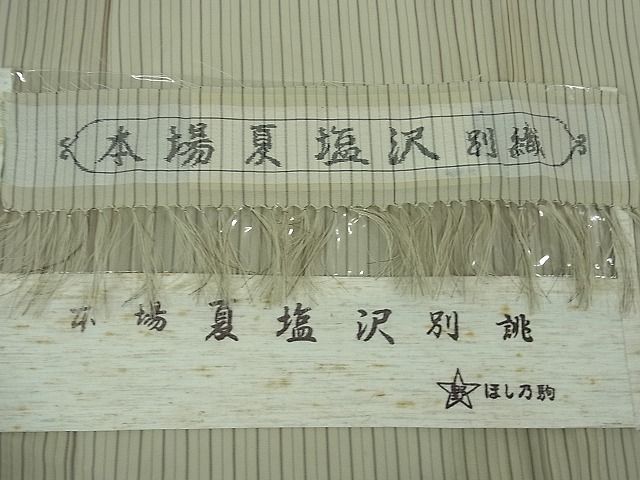 本場夏塩沢別織
本場夏塩沢別誂
野 ほし乃駒